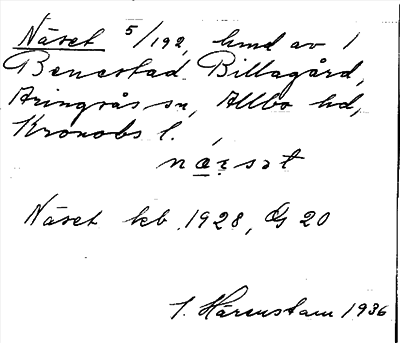 Näset 5/192, hmd av 1
Benestad Billagård,
Aringsås sn, Allbo hd,
Kronobs l.
næ̣rsət
Näset kb. 1928, G 20
I. Härenstam 1936